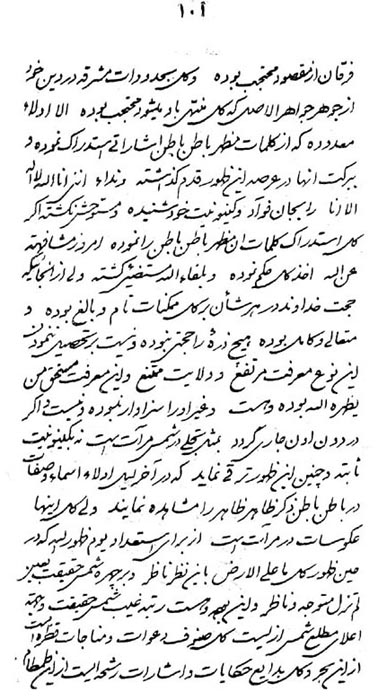 ١٠٢
فرقان از مقصود محتجب بوده وکل بحدودات مشرقه در دین خود
از جوهر جواهر الاصل که کل منتهی باو میشود محتجب بوده الا اولاء
معدوده که از کلمات منظر باطن باطن اشاراتی استدراک نموده و
ببرکت انها در عرصه این ظهور قدم گذاشته ونداء اننی انا الله لا اله
الا انا را بسمع فؤاد وکینونیت خود شنیده ومستوحش نگشته اگر
کل استدراک کلمات ان منظر باطن باطن را نموده امروز مشافهة
عن الله اخذ کل حکم نموده وبلقاء الله مستفیض گشته ولی از انجائیکه
حجت خداوند در هر شأن بر کل ممکنات تام و بالغ بوده و
متعالی وکامل بوده هیچ ذره را حجتی نبوده ونیست بر تحصیل نمودن
این نوع معرفت مرتفع و ولایت ممتنع واین معرفت مستحق من
یظهره الله بوده وهست وغیر او را سزاوار نبوده ونیست و اگر
در دون اون جاری گردد بمثل تجلی در شمس مرآت است نه بکینونیت
ثابته وچنین این ظهور ترقی نماید که در آخر لیل اولاء اسماء وصفات
در باطن باطن ذکر ظاهر ظاهر را مشاهده نمایند ولی کل اینها
عکوسات در مرآت است از برای استعداد یوم ظهور الله که در
حین ظهور کل ما علی الارض باین نظر ناظر وبر چهره شمس حقیقت بعین
لم تزل متوجه وناظر واین بوده وهست رتبه غیب شمس حقیقت وجهة
اعلای مطلع شمس ازلیت کل صنوف دعوات ومناجات قطره است
از این بحر وکل بدایع حکایات واشارات رشحه ایست از این طمطام